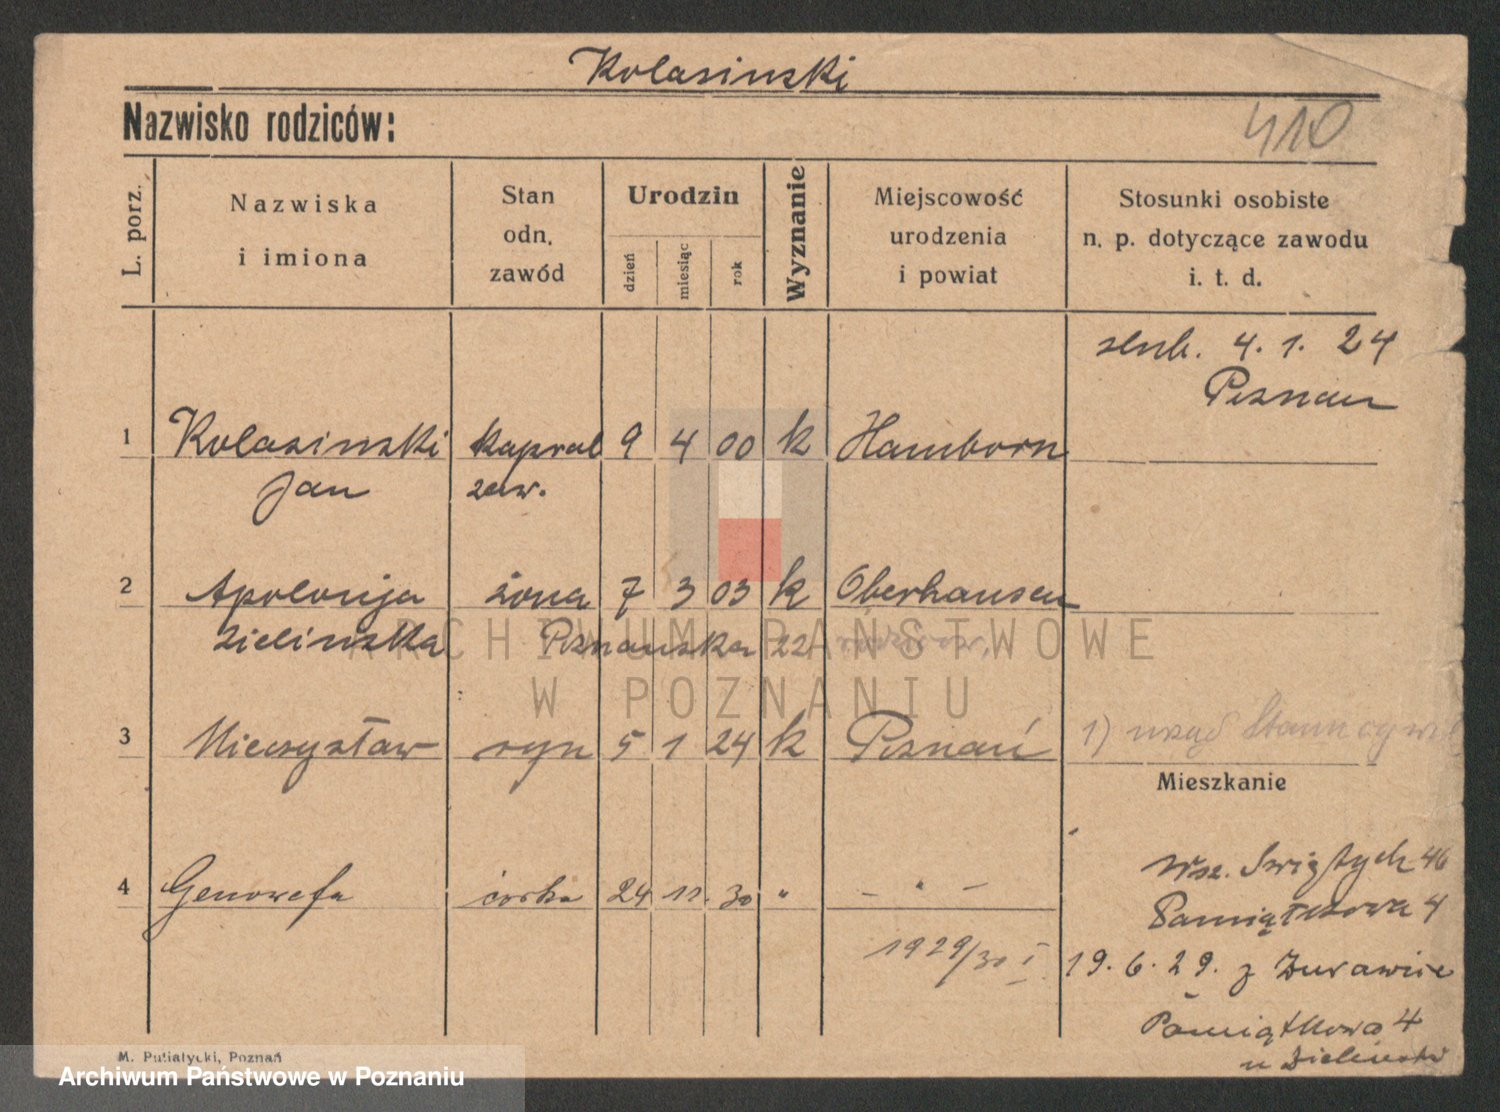 Kolasinski
Nazwisko rodziców:
410
L. porz.
Nazwiska
i imiona
Stan
odn.
zawód
Urodzin
dzień
miesiąc
rok
Wyznanie
Miejscowość
urodzenia
i powiat
Stosunki osobiste
n. p. dotyczące zawodu
i. t. d.
4. 1. 24
Poznan
1 Kolasinski kapral 9 4 00 k Hamborn
Jan zaw.
2 Apolonja żona 7 3 03 k Oberhausen
Zielinska Poznanska 22
ARCHIWUM PAŃSTWOWE
W POZNANIU
3 Mieczysław syn 5 1 24 k Poznań 1) urząd Stanu cywil
Mieszkanie
Wsz. Swiętych 46
4 Genowefa córka 24 11. 30 " – " –
Pamiątkowa 4
1929/30 I 19. 6. 29. z Żurawice
Pamiątkowa 4
u Zielinski
M. Putiatycki, Poznań
Archiwum Państwowe w Poznaniu